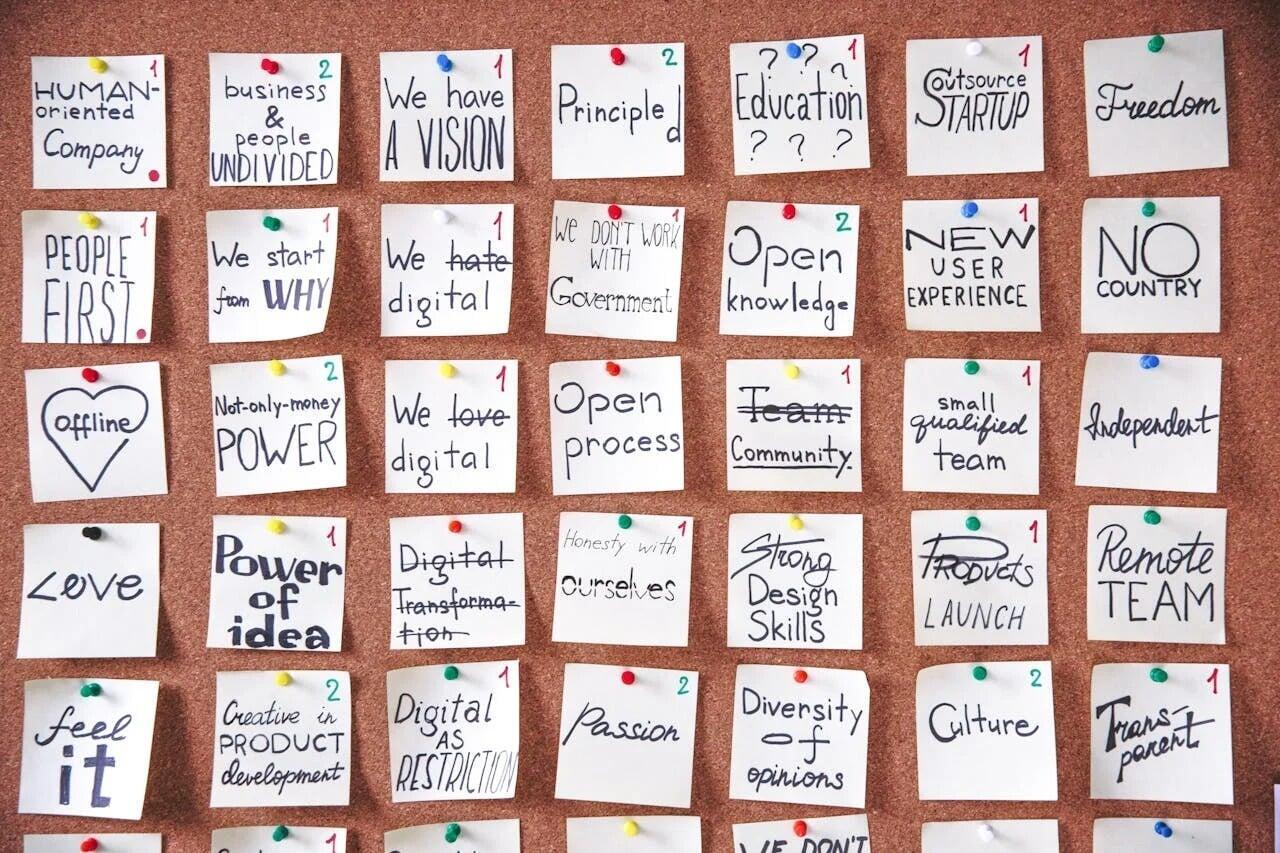 1
HUMAN-
oriented
Company
2
business
&
people
UNDIVIDED
1
We have
A VISION
2
Principled
1
? ? ?
Education
? ? ?
1
Outsource
STARTUP
Freedom
1
PEOPLE
FIRST
1
We start
from WHY
1
We hate
digital
1
We DON'T WORK
WITH
Government
2
Open
knowledge
1
NEW
USER
EXPERIENCE
NO
COUNTRY
offline
2
Not-only-money
POWER
1
We love
digital
Open
process
1
Team
Community.
1
small
qualified
team
Independent
Love
1
Power
of
idea
Digital
Transforma-
tion
1
Honesty with
ourselves
Strong
Design
Skills
1
Products
LAUNCH
Remote
TEAM
feel
it
2
Creative in
PRODUCT
development
1
Digital
AS
RESTRICTION
2
Passion
Diversity
of
opinions
2
Culture
1
Trans-
parent
1
WE DON'T